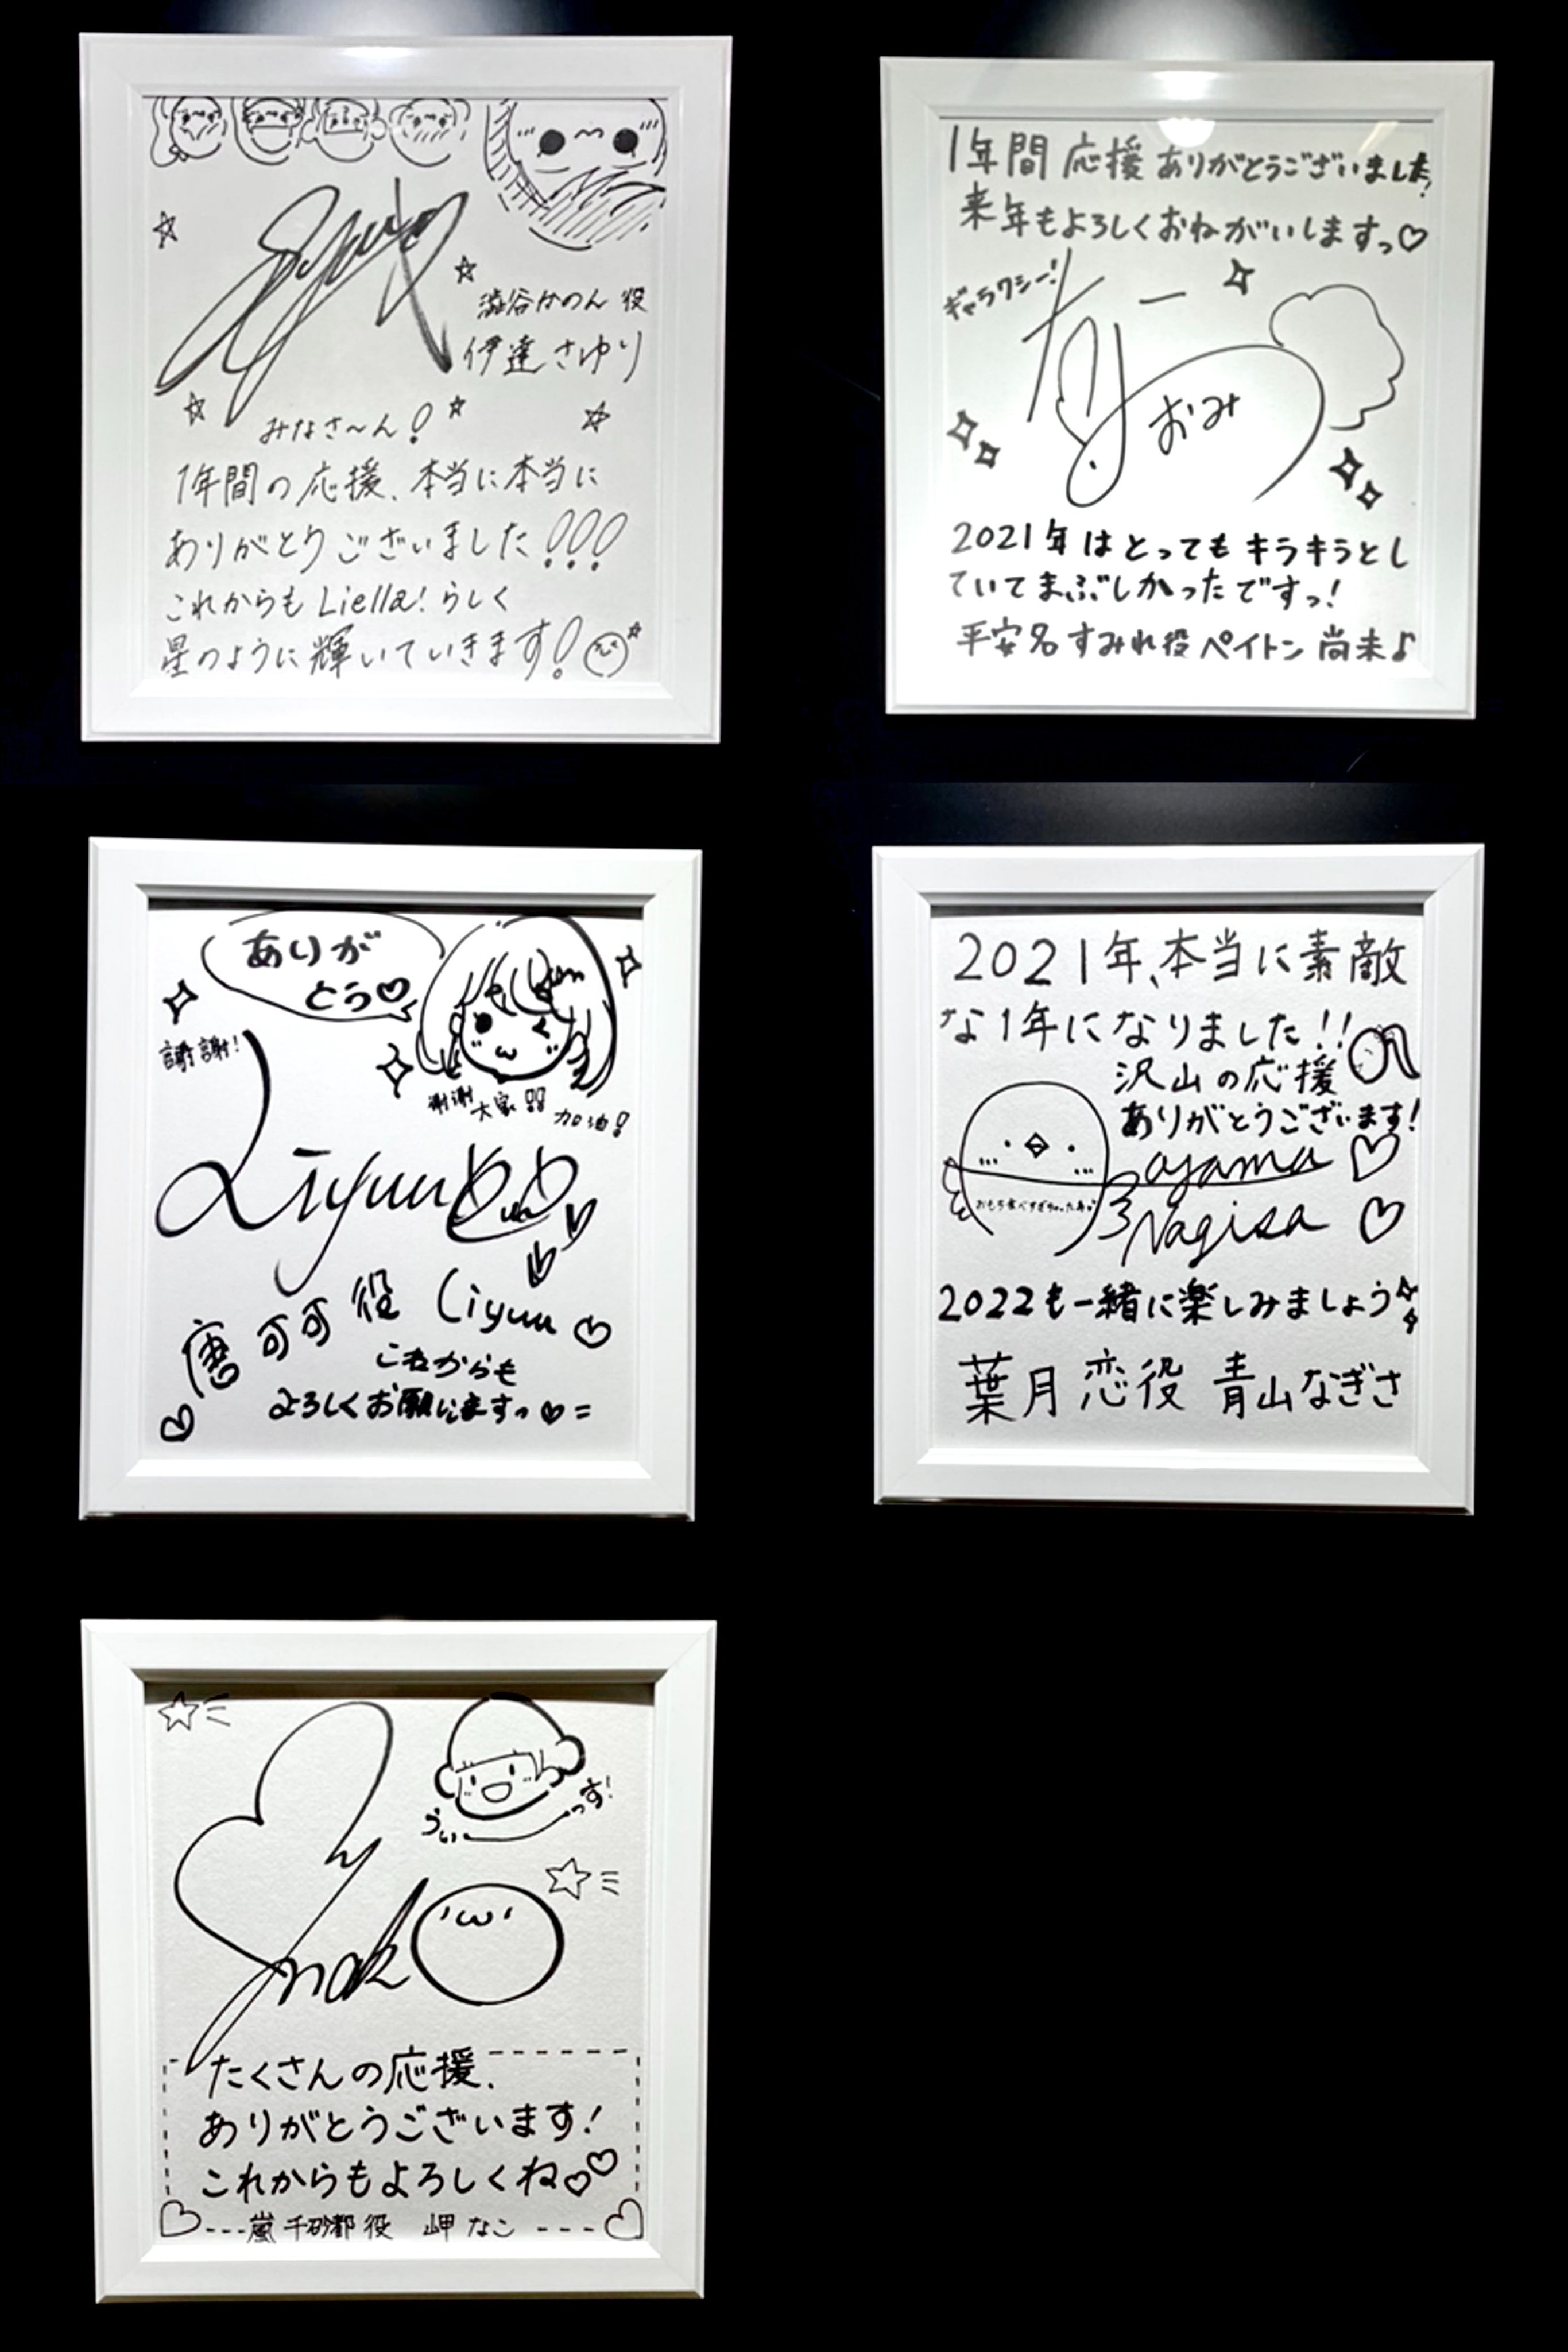 澁谷かのん役
伊達さゆり
みなさ〜ん!
1年間の応援、本当に本当に
ありがとうございました!!!
これからもLiella!らしく
星のように輝いていきます!
1年間応援ありがとうございました!
来年もよろしくおねがいしますっ♡
ギャラクシー!
なー
おみ
2021年はとってもキラキラとし
ていてまぶしかったですっ!
平安名すみれ役ペイトン尚未♪
ありが
とう♡
謝謝!
谢谢大家!! 加油!
Liyuu
唐可可役 Liyuu♡
これからも
よろしくお願いしますっ♡=
2021年、本当に素敵
な1年になりました!!
沢山の応援
ありがとうございます!
aoyama♡
おもち食べすぎちゃった
Nagisa♡
2022も一緒に楽しみましょう
葉月恋役 青山なぎさ
ういーっす!
Nako
たくさんの応援、
ありがとうございます!
これからもよろしくね♡♡
嵐千砂都役 岬なこ